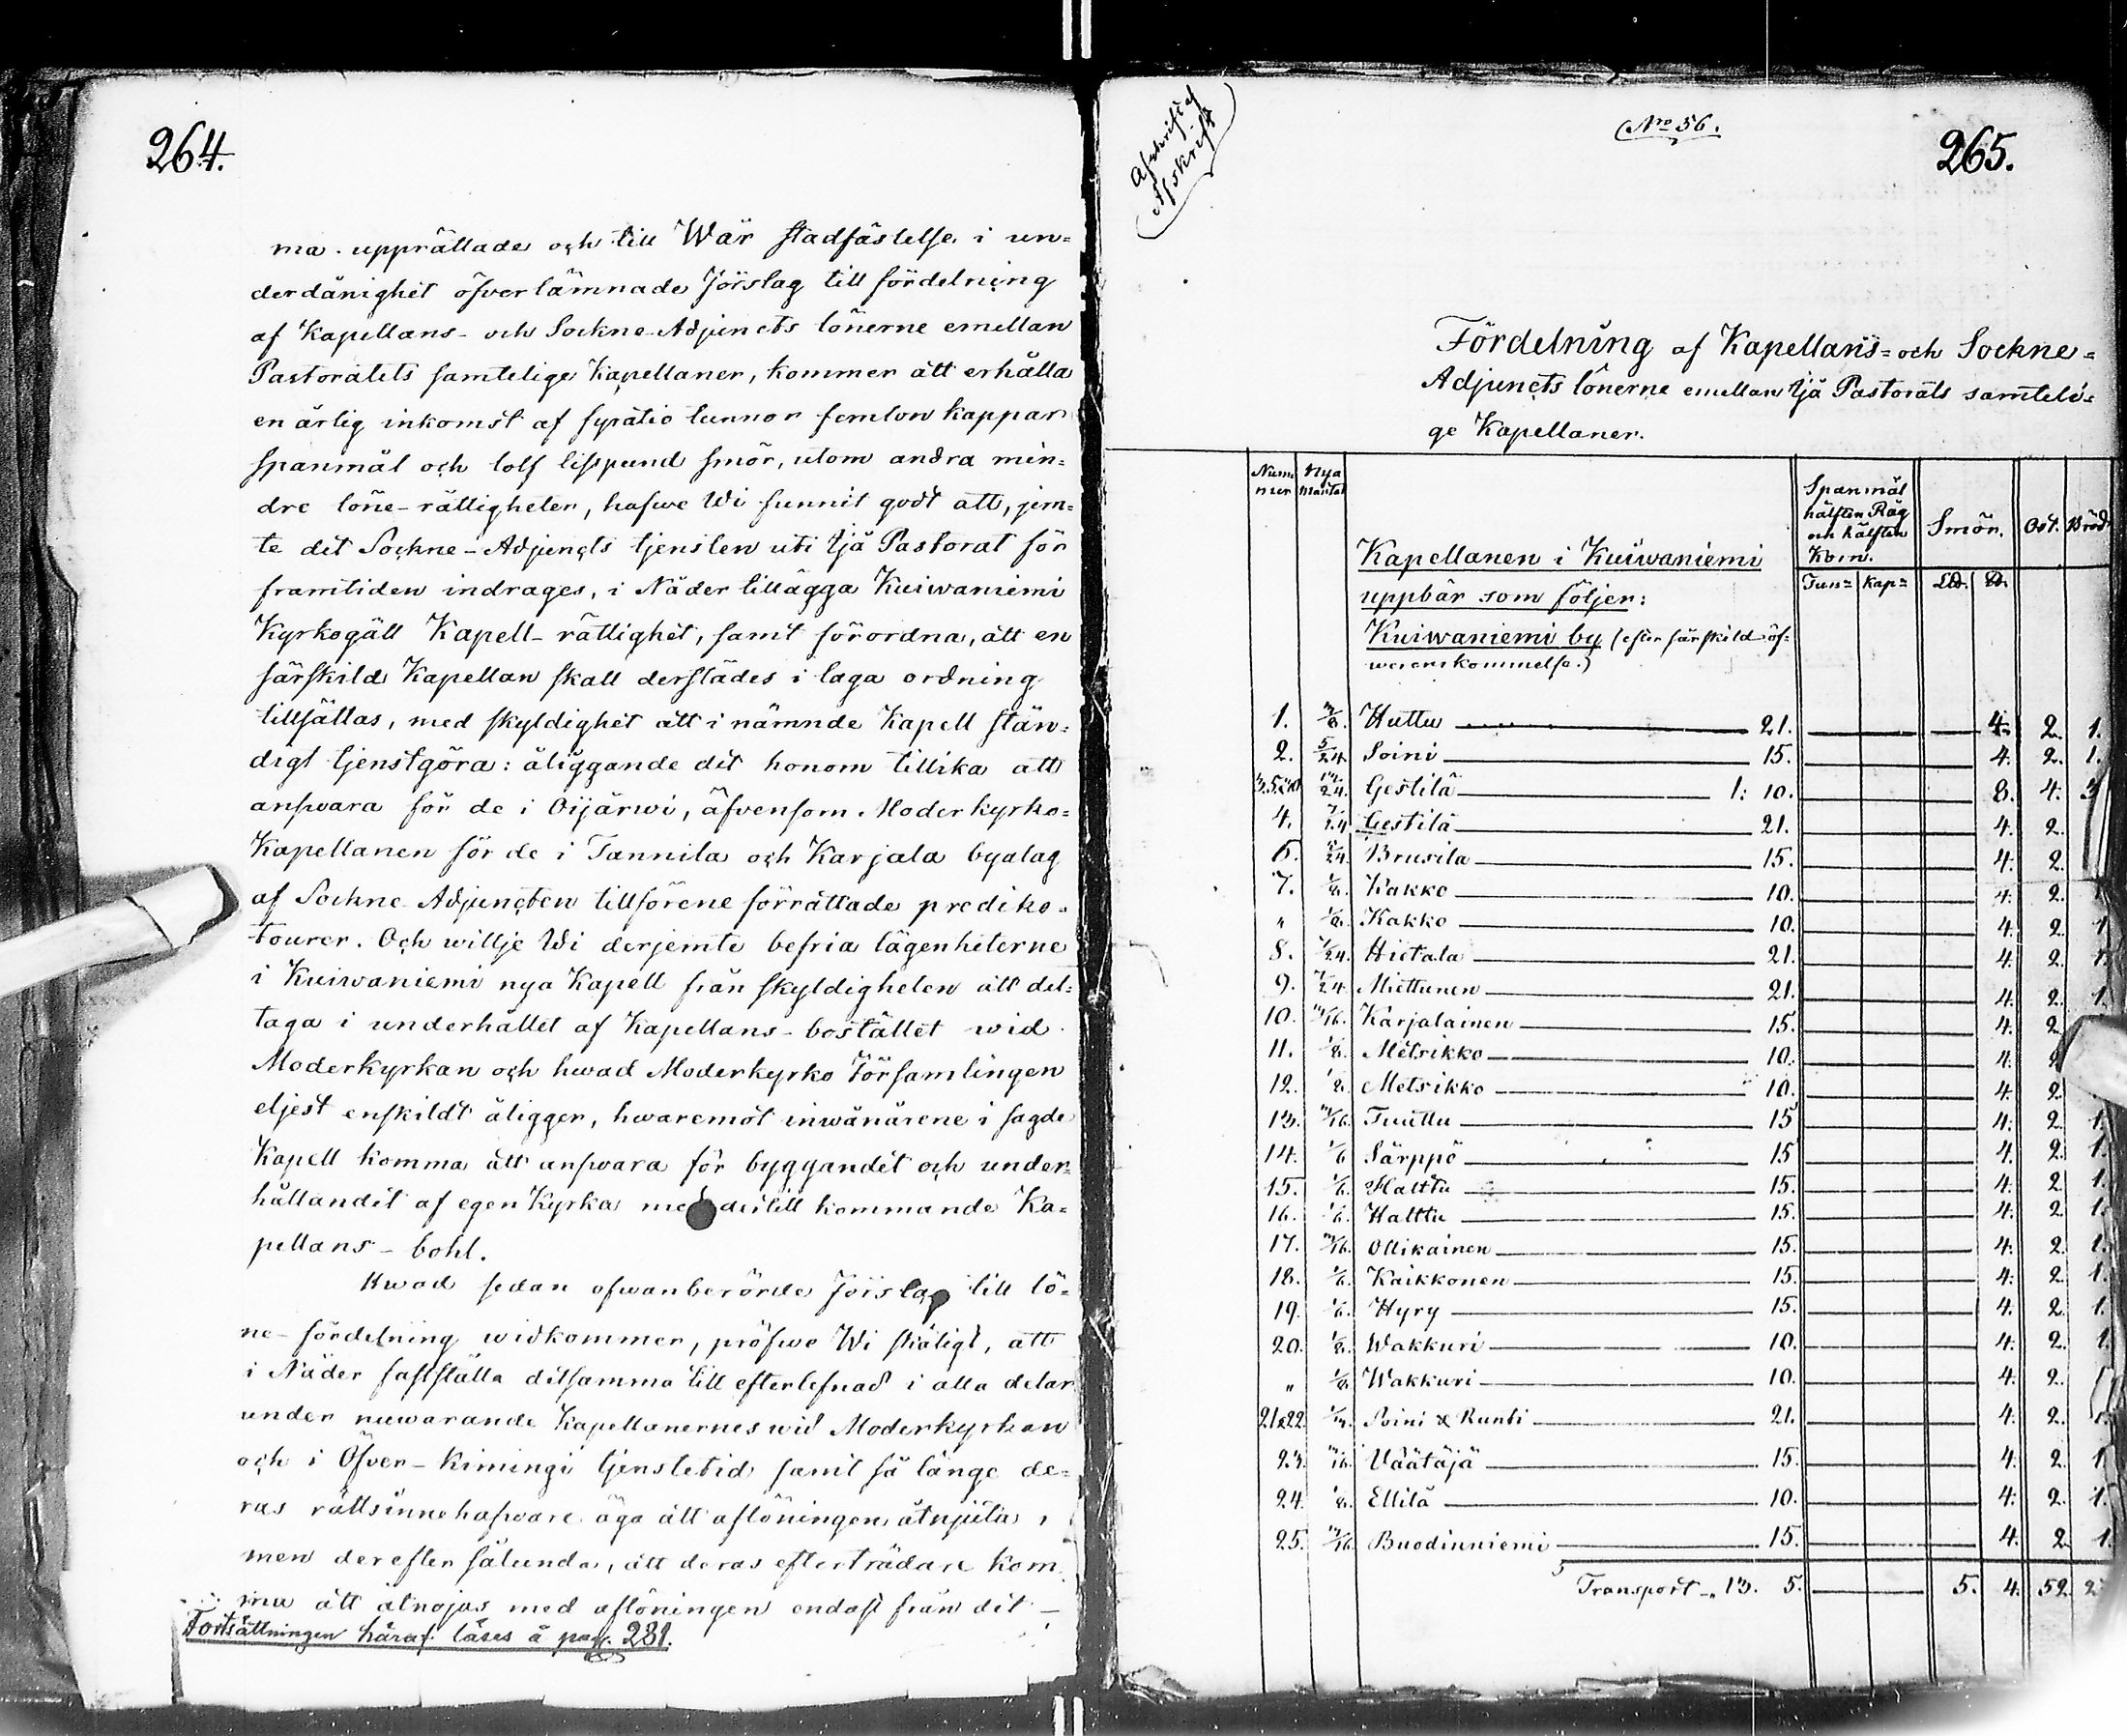 264.
ma. upprättade och till Wår stadfästelse i un=
derdånighet öfverlämnade Förslag till fördelning
af Kapellans- och Sockne-Adjuncts lönerne emellan
Pastoratets samtelige Kapellaner, kommer att erhålla
en årlig inkomst af fyratio tunnor femton kappar
spanmål och tolf lispund smör, utom andra min=
dre löne-rättigheter, hafwe Wi funnit godt att, jem=
te det Sockne-Adjuncts tjensten uti Ijå Pastorat för
framtiden indrages, i Nåder tillägga Kuiwaniemi
Kyrkogäll Kapell-rättighet, samt förordna, att en
särskild Kapellan skall derstädes i laga ordning
tillsättas, med skyldighet att i nämnde Kapell stän=
digt tjenstgöra: åliggande det honom tillika att
answara för de i Oijärwi, äfvensom Moderkyrko=
Kapellanen för de i Tannila och Karjala byalag
af Sockne Adjuncten tillförene förrättade prediko=
tourer. Och willje Wi derjemte befria lägenheterne
i Kuiwaniemi nya Kapell från skyldigheten att del=
taga i underhållet af Kapellans-bostället wid
Moderkyrkan och hwad Moderkyrko Församlingen
eljest enskildt åligger, hwaremot inwånarene i sagde
Kapell komma att answara för byggandet och under=
hållandet af egen Kyrka med dertill kommande Ka=
pellans-bohl.
Hwad sedan ofwanberörde Förslag till lö=
ne-fördelning widkommer, pröfwe Wi skäligt, att
i Nåder fastställa detsamma till efterlefnad i alla delar
under nuwarande Kapellanernes wid Moderkyrkan
och i Öfver-Kimingi tjenstetid samt så länge de=
ras rättsinnehafware äga att aflöningen åtnjuta,
men derefter sålunda, att deras efterträdare kom
ma att åtnöjas med aflöningen endast från det-
Fortsättningen häraf läses å pag. 281.
Afskrift af
Afskrift
No 56.
265.
Fördelning af Kapellans= och Sockne=
Adjuncts lönerne emellan Ijå Pastorats samteli=
ge Kapellaner.
Num̄mer Nya Mantal Spanmål hälften Råg och hälften Korn. Smör. Ost. Bröd
Tun= Kap= L℔. ℔.
Kapellanen i Kuiwaniemi
uppbär som följer:
Kuiwaniemi by (efter särskild öf=
werenskommelse.)
1. 3/8. Huttu 21. 4. 2. 1.
2. 5/24 Soini 15. 4. 2. 1.
Gestilä 1: 10. 8. 4. 3
4. 7/24 Gestilä 21. 4. 2.
/24. Brusila 15. 4. 2.
7. 1/8. Kakko 10. 4. 2. 1
" 1/8. Kakko 10. 4. 2. 1
8. 7/24. Hietala 21. 4. 2. 1.
9. 7/24 Miettunen 21. 4. 2. 1.
10. 3/16. Karjalainen 15. 4. 2
11. 1/8. Metsikko 10. 4. 2
12. 1/8. Metsikko 10. 4. 2.
13. 3/16. Tuuttu 15 4. 2. 1.
14. 1/6 Särppö 15 4. 2. 1.
15. 1/6. Halttu 15. 4. 2. 1.
16. 1/6. Halttu 15. 4. 2. 1.
17. 3/16. Ollikainen 15. 4. 2. 1.
18. 1/6. Kaikkonen 15. 4. 2. 1.
19. 1/6. Hyry 15. 4. 2. 1.
20. 1/8. Wakkuri 10. 4. 2. 1.
" 1/8. Wakkuri 10. 4. 2.
21&22. Soini & Runti 21. 4. 2.
23. 3/16. Väätäjä 15. 4. 2. 1
24. 1/8. Ellilä 10. 4. 2. 1.
25. 3/16. Buodinniemi 15. 4. 2 1.
Transport 13. 5. 5. 4. 52. 2